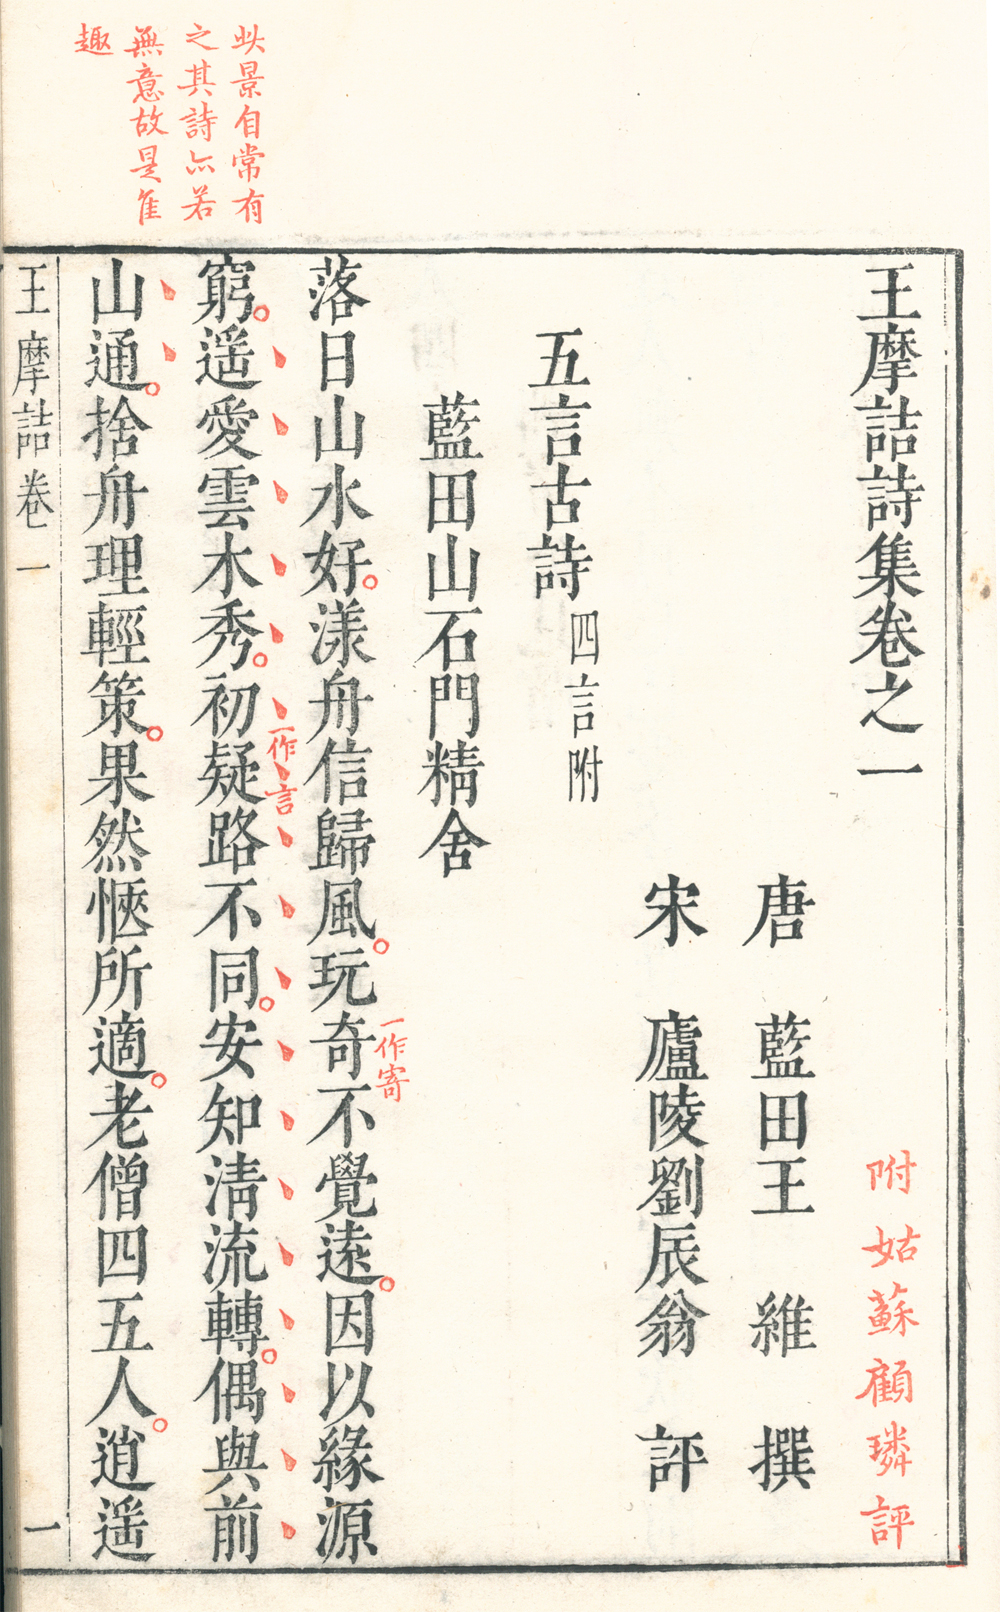 此景自常有
之其詩亦若
無意故是佳
趣
王摩詰詩集卷之一
附姑蘇顧璘評
唐　藍田王　維　撰
宋　廬陵劉辰翁　評
五言古詩四言附
藍田山石門精舍
落日山水好漾舟信歸風玩奇不覺遠因以緣源
一作寄
窮遥愛雲木秀初疑路不同安知清流轉偶與前
一作言
山通捨舟理輕策果然愜所適老僧四五人逍遥
王摩詰卷一
一